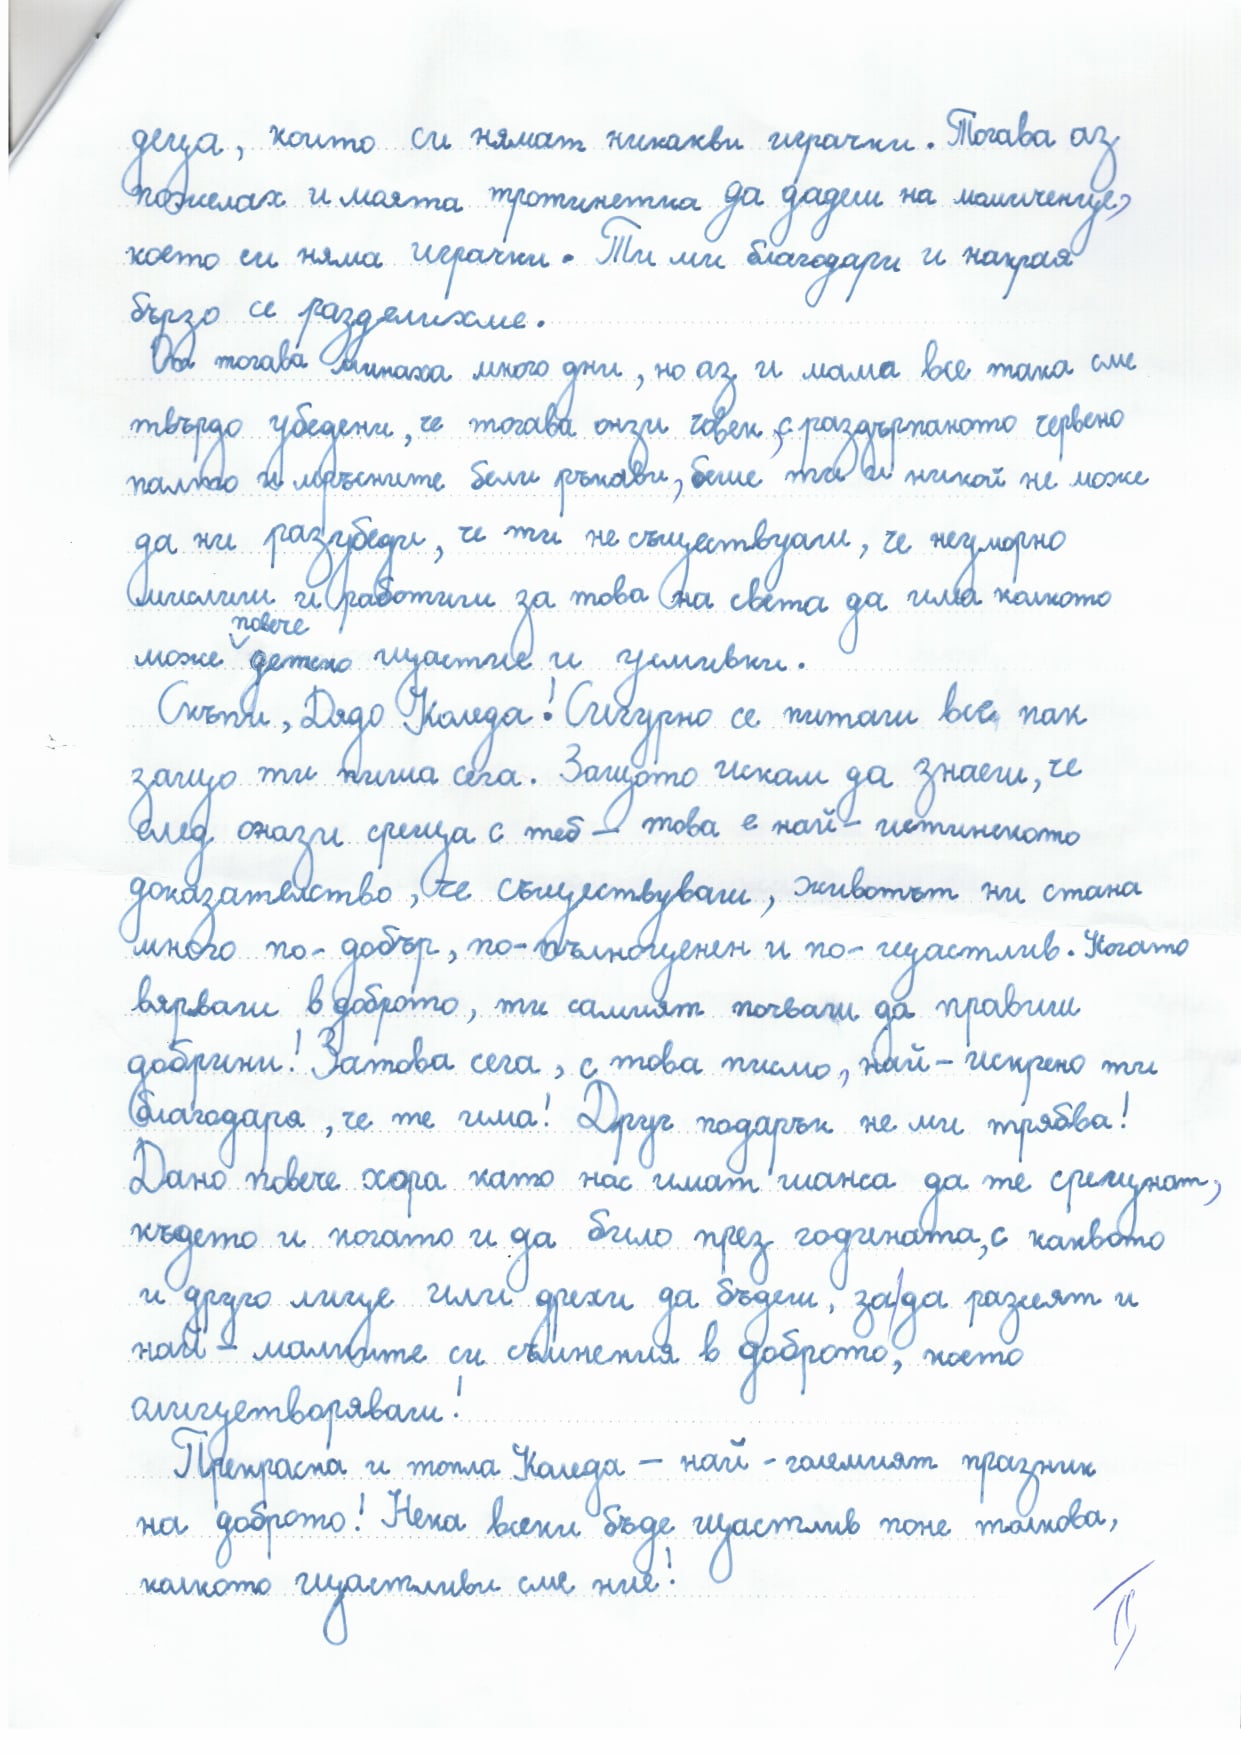 деца, които си нямат никакви играчки. Тогава аз
пожелах и моята тротинетка да дадеш на момиченце,
което си няма играчки. Ти ми благодари и накрая
бързо се разделихме.
От тогава минаха много дни, но аз и мама все така сме
твърдо убедени, че тогава онзи човек, с раздърпаното червено
палто и мръсните бели ръкави, беше ти и никой не може
да ни разубеди, че ти не съществуваш, че неуморно
мислиш и работиш за това на света да има колкото
може повече детско щастие и усмивки.
Скъпи, Дядо Коледа! Сигурно се питаш все пак
защо ти пиша сега. Защото искам да знаеш, че
след онази среща с теб – това е най-истинското
доказателство, че съществуваш, животът ни стана
много по-добър, по-пълноценен и по-щастлив. Когато
вярваш в доброто, ти самият почваш да правиш
добрини! Затова сега, с това писмо, най-искрено ти
благодаря, че те има! Друг подарък не ми трябва!
Дано повече хора като нас имат шанса да те срещнат,
където и когато и да било през годината, с каквото
и друго лице или дрехи да бъдеш, за да разсеят и
най-малките си съмнения в доброто, което
олицетворяваш!
Прекрасна и топла Коледа – най-големият празник
на доброто! Нека всеки бъде щастлив поне толкова,
колкото щастливи сме ние!